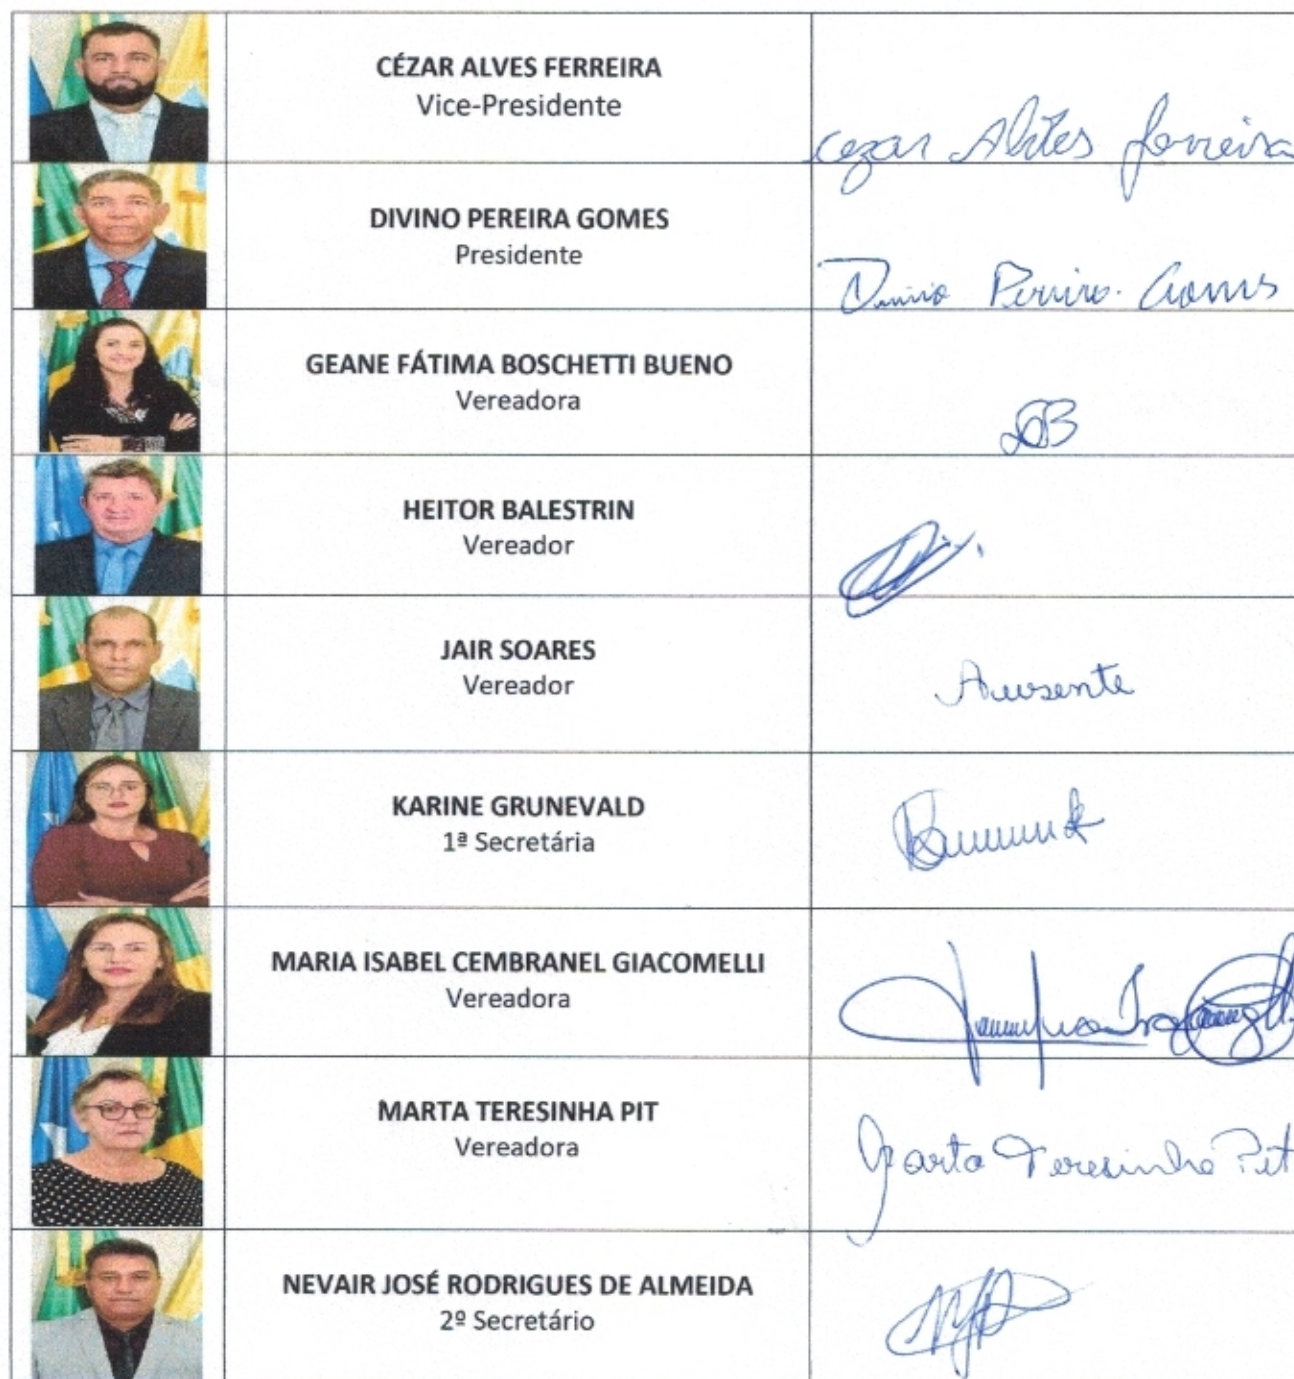 CÉZAR ALVES FERREIRA
Vice-Presidente
Cezar Alves Ferreira
DIVINO PEREIRA GOMES
Presidente
Divino Pereira Gomes
GEANE FÁTIMA BOSCHETTI BUENO
Vereadora
HEITOR BALESTRIN
Vereador
JAIR SOARES
Vereador
Ausente
KARINE GRUNEVALD
1ª Secretária
MARIA ISABEL CEMBRANEL GIACOMELLI
Vereadora
MARTA TERESINHA PIT
Vereadora
Marta Teresinha Pit
NEVAIR JOSÉ RODRIGUES DE ALMEIDA
2º Secretário